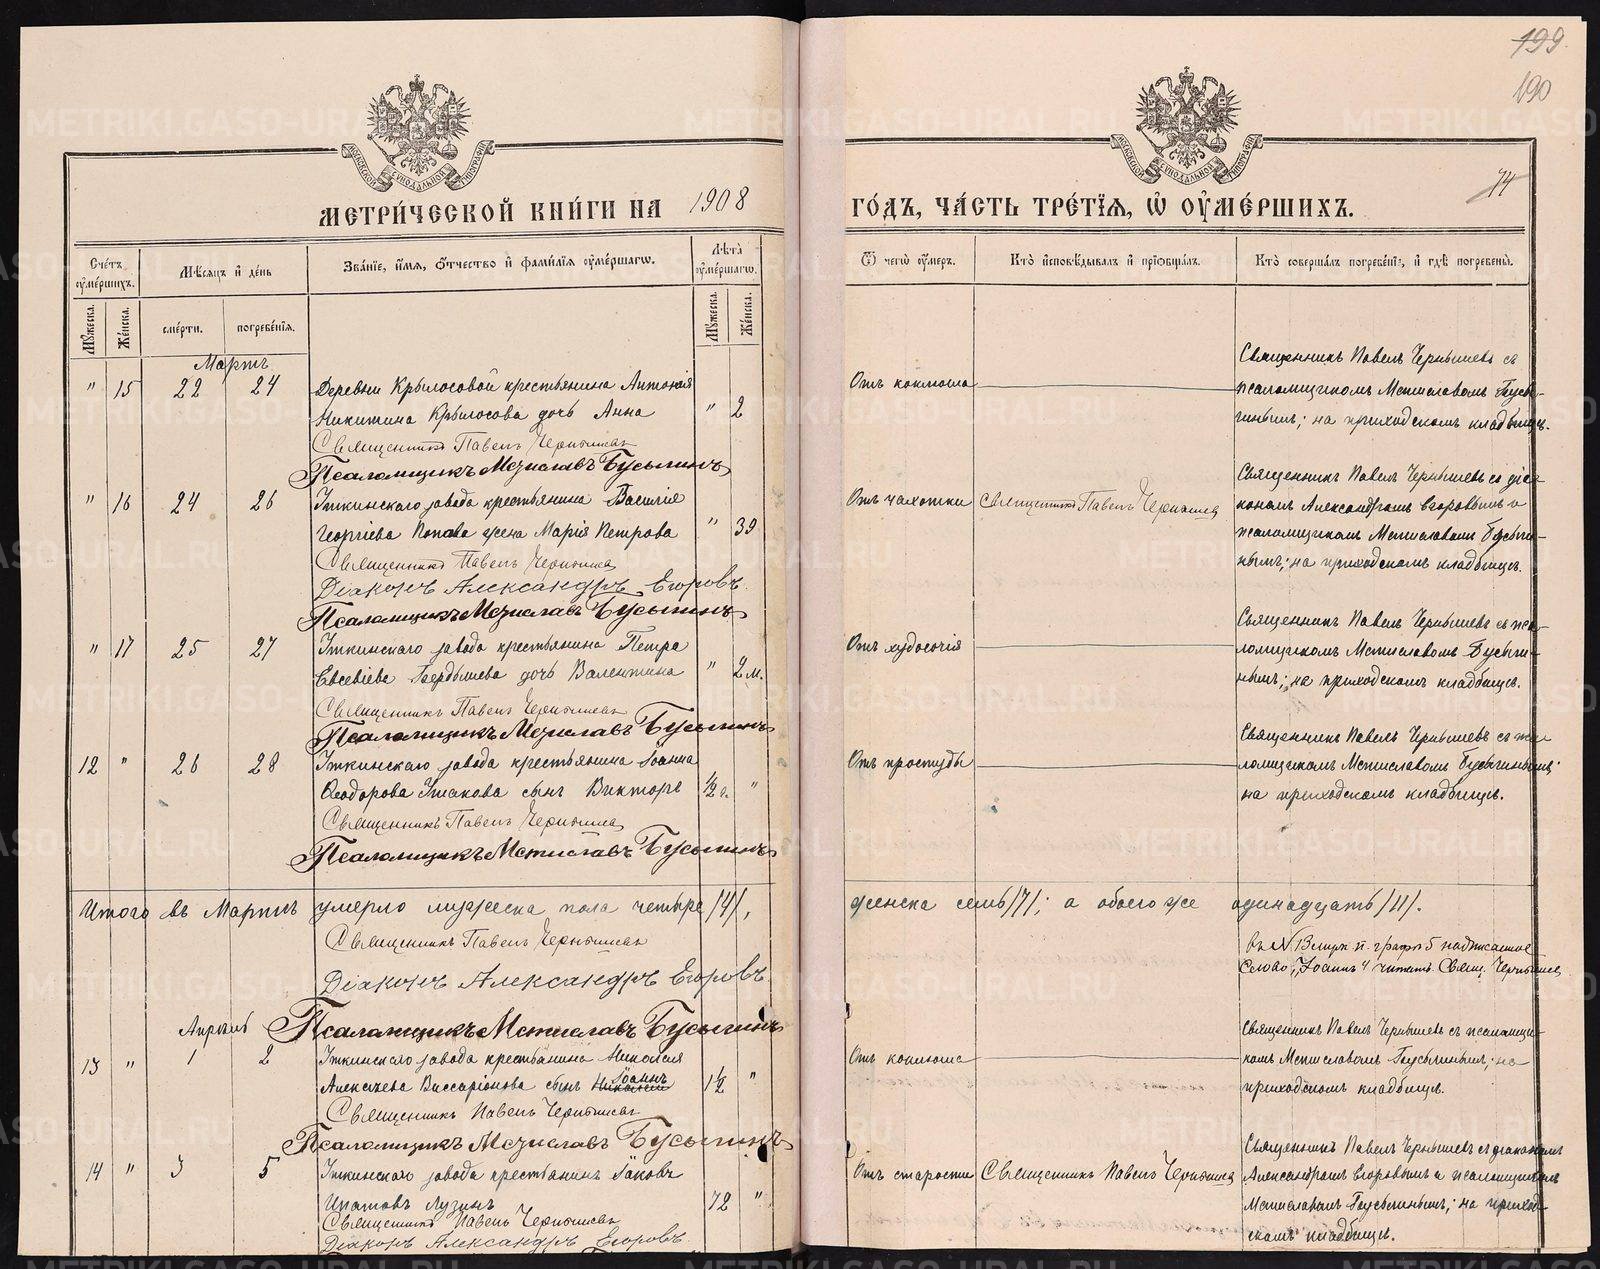 199
190
74
МЕТРИ́ЧЕСКОЙ КНИ́ГИ НА 1908
ГО́ДЪ, ЧА́СТЬ ТРЕ́ТІЯ, Ѡ ОУМЕ́РШИХЪ.
МОСКОВСКОЙ СѴНОДАЛЬНОЙ ТИПОГРАФІИ
МОСКОВСКОЙ СѴНОДАЛЬНОЙ ТИПОГРАФІИ
Счетъ оумершихъ.
Мѣсяцъ и день
Званіе, имя, отчество и фамилія оумершагѡ.
Лѣта оумершагѡ.
Ѿ чегѡ оумеръ.
Кто исповѣдывалъ и пріобщалъ.
Кто совершалъ погребеніе, и гдѣ погребены.
Мужеска.
Женска.
смерти.
погребенія.
Мужеска.
Женска.
Мартъ
" 15 22 24 Деревни Крылосовой крестьянина Антонія
Никитина Крылосова дочь Анна " 2
Священникъ Павелъ Чернышевъ
Псаломщикъ Мстиславъ Бусыгинъ
Отъ коклюша
Священникъ Павелъ Чернышевъ съ
псаломщикомъ Мстиславомъ Бусы-
гинымъ; на приходскомъ кладбищѣ.
" 16 24 26 Уткинскаго завода крестьянина Василія
Георгіева Попова жена Марія Петрова " 39
Священникъ Павелъ Чернышевъ
Діаконъ Александръ Егоровъ.
Псаломщикъ Мстиславъ Бусыгинъ
Отъ чахотки Священникъ Павелъ Чернышевъ
Священникъ Павелъ Чернышевъ съ діа-
кономъ Александромъ Егоровымъ и
псаломщикомъ Мстиславомъ Бусыги-
нымъ; на приходскомъ кладбищѣ.
" 17 25 27 Уткинскаго завода крестьянина Петра
Евсевіева дочь Валентина " 2 м.
Священникъ Павелъ Чернышевъ
Псаломщикъ Мстиславъ Бусыгинъ
Отъ худосочія
Священникъ Павелъ Чернышевъ съ пса-
ломщикомъ Мстиславомъ Бусыги-
нымъ; на приходскомъ кладбищѣ.
12 " 26 28 Уткинскаго завода крестьянина Іоанна
Ѳеодорова сынъ Викторъ ½ г. "
Священникъ Павелъ Чернышевъ
Псаломщикъ Мстиславъ Бусыгинъ
Отъ простуды
Священникъ Павелъ Чернышевъ съ пса-
ломщикомъ Мстиславомъ Бусыгинымъ;
на приходскомъ кладбищѣ.
Итого въ Мартѣ умерло мужеска пола четыре /4/, женска семь /7/; а обоего же одинадцать /11/.
Священникъ Павелъ Чернышевъ
Діаконъ Александръ Егоровъ
Псаломщикъ Мстиславъ Бусыгинъ
въ № 13 муж. п. графѣ 5 надписанное
слово: "Іоаннъ" читать. Свящ. Чернышев
Апрѣль
13 " 1 2 Уткинскаго завода крестьянина Николая
Алексѣева Виссаріонова сынъ Николай Іоаннъ 1½ "
Священникъ Павелъ Чернышевъ
Псаломщикъ Мстиславъ Бусыгинъ
Отъ коклюша
Священникъ Павелъ Чернышевъ съ псаломщи-
комъ Мстиславомъ Бусыгинымъ; на
приходскомъ кладбищѣ.
14 " 3 5 Уткинскаго завода крестьянинъ Іаковъ
Ипатовъ Лузинъ 72 "
Священникъ Павелъ Чернышевъ
Діаконъ Александръ Егоровъ.
Отъ старости Священникъ Павелъ Чернышевъ
Священникъ Павелъ Чернышевъ съ діакономъ
Александромъ Егоровымъ и псаломщикомъ
Мстиславомъ Бусыгинымъ; на приход-
скомъ кладбищѣ.
METRIKI.GASO-URAL.RU